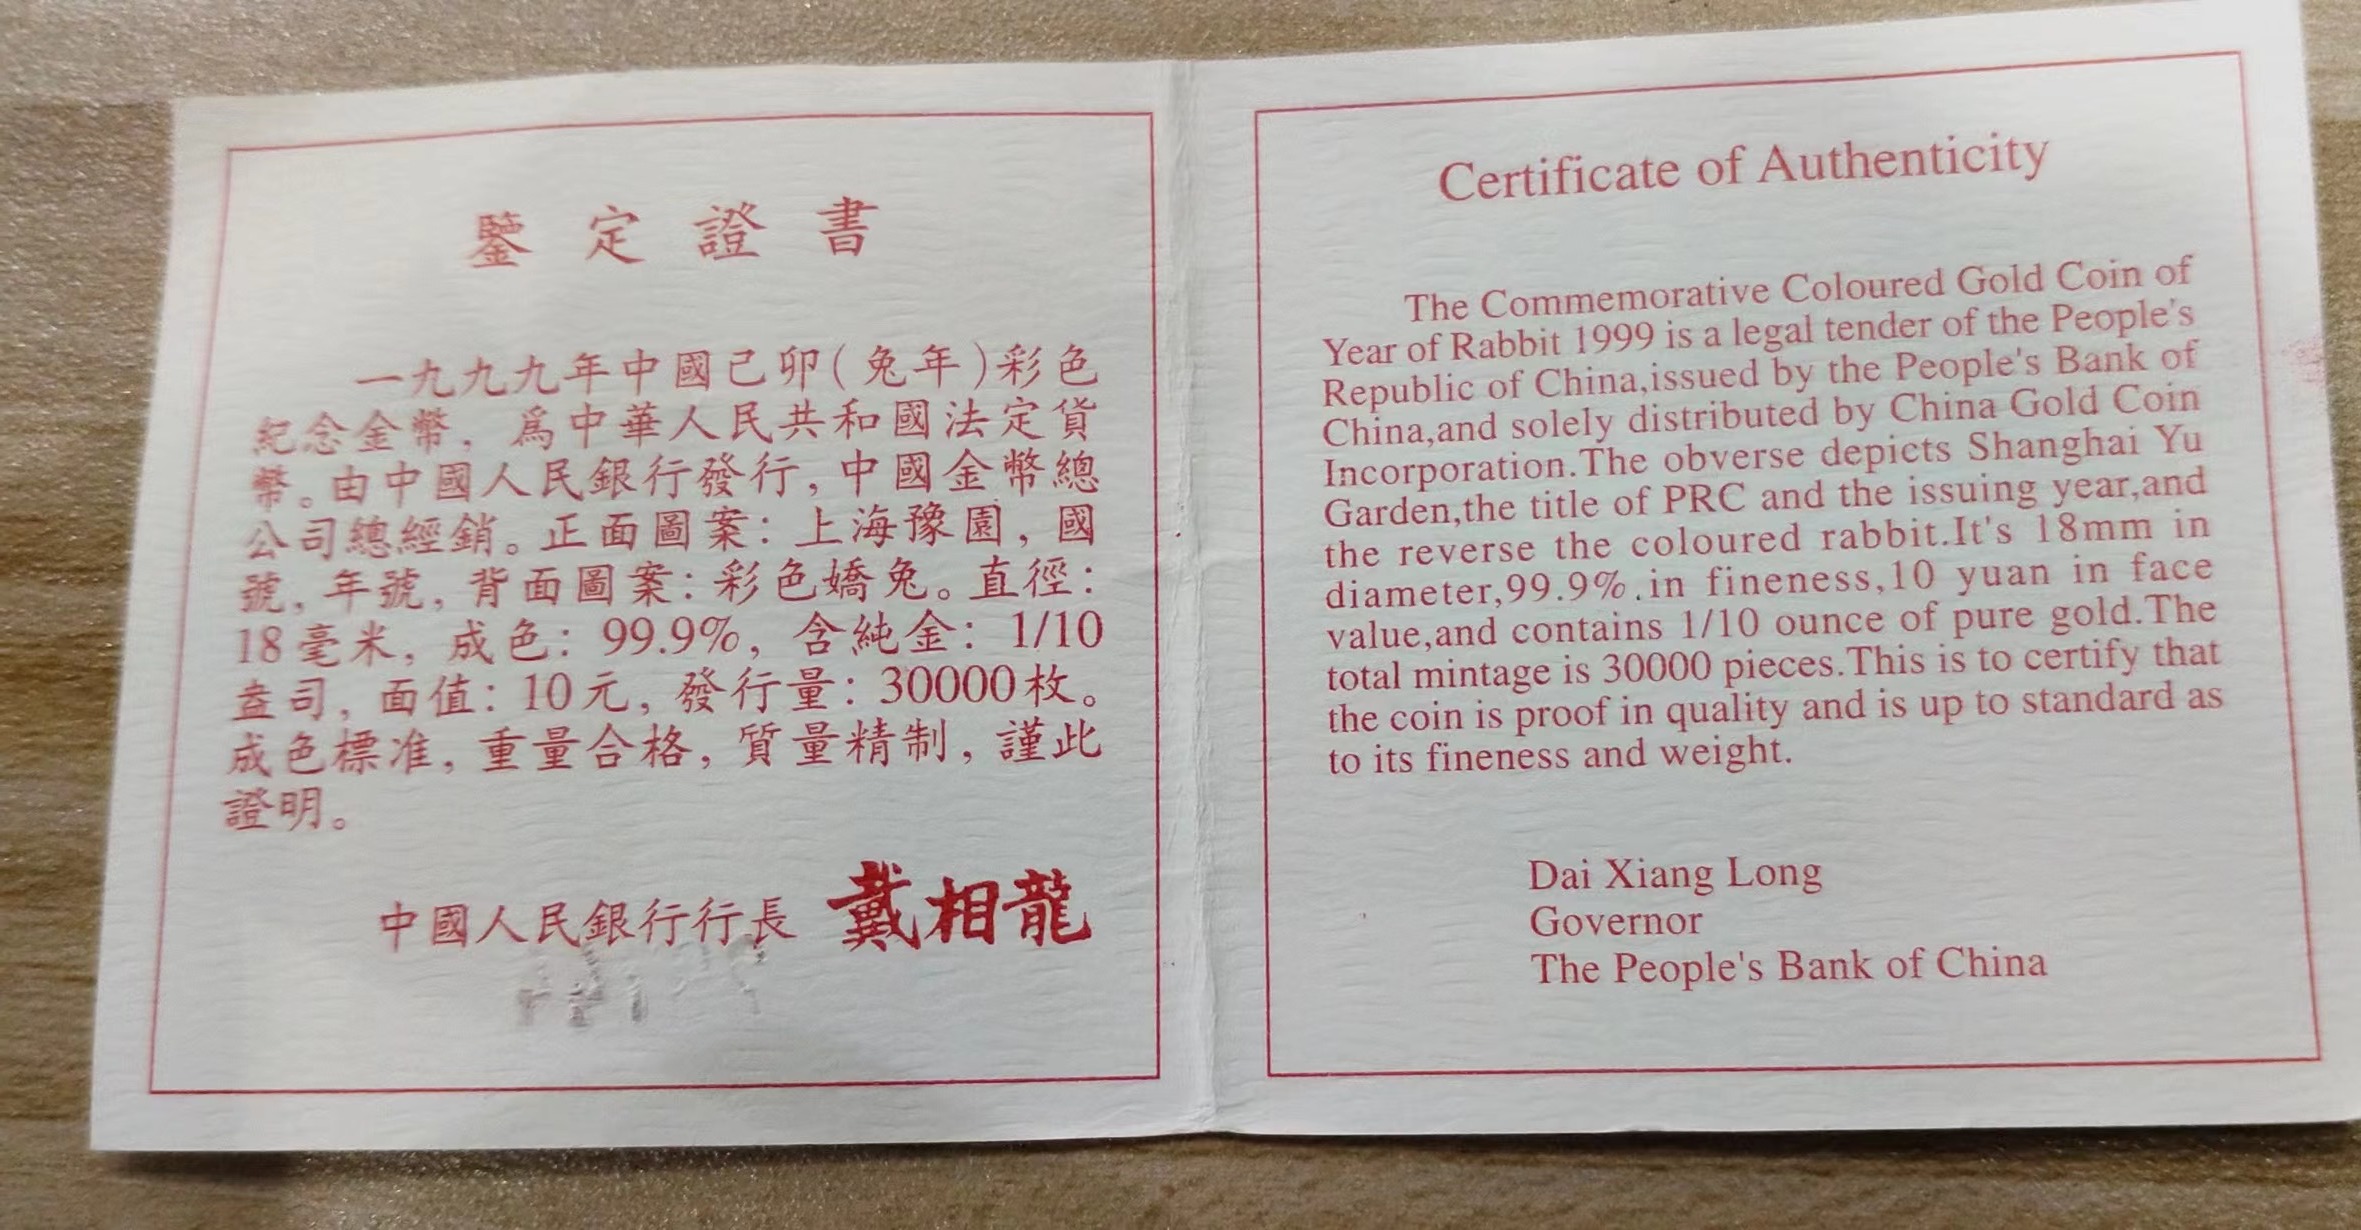 鑒定證書
一九九九年中國己卯(兔年)彩色
紀念金幣，爲中華人民共和國法定貨
幣。由中國人民銀行發行，中國金幣總
公司總經銷。正面圖案：上海豫園，國
號，年號，背面圖案：彩色嬌兔。直徑：
18毫米，成色：99.9%，含純金：1/10
盎司，面值：10元，發行量：30000枚。
成色標准，重量合格，質量精制，謹此
證明。
中國人民銀行行長 戴相龍
Certificate of Authenticity
The Commemorative Coloured Gold Coin of
Year of Rabbit 1999 is a legal tender of the People's
Republic of China,issued by the People's Bank of
China,and solely distributed by China Gold Coin
Incorporation.The obverse depicts Shanghai Yu
Garden,the title of PRC and the issuing year,and
the reverse the coloured rabbit.It's 18mm in
diameter,99.9%.in fineness,10 yuan in face
value,and contains 1/10 ounce of pure gold.The
total mintage is 30000 pieces.This is to certify that
the coin is proof in quality and is up to standard as
to its fineness and weight.
Dai Xiang Long
Governor
The People's Bank of China